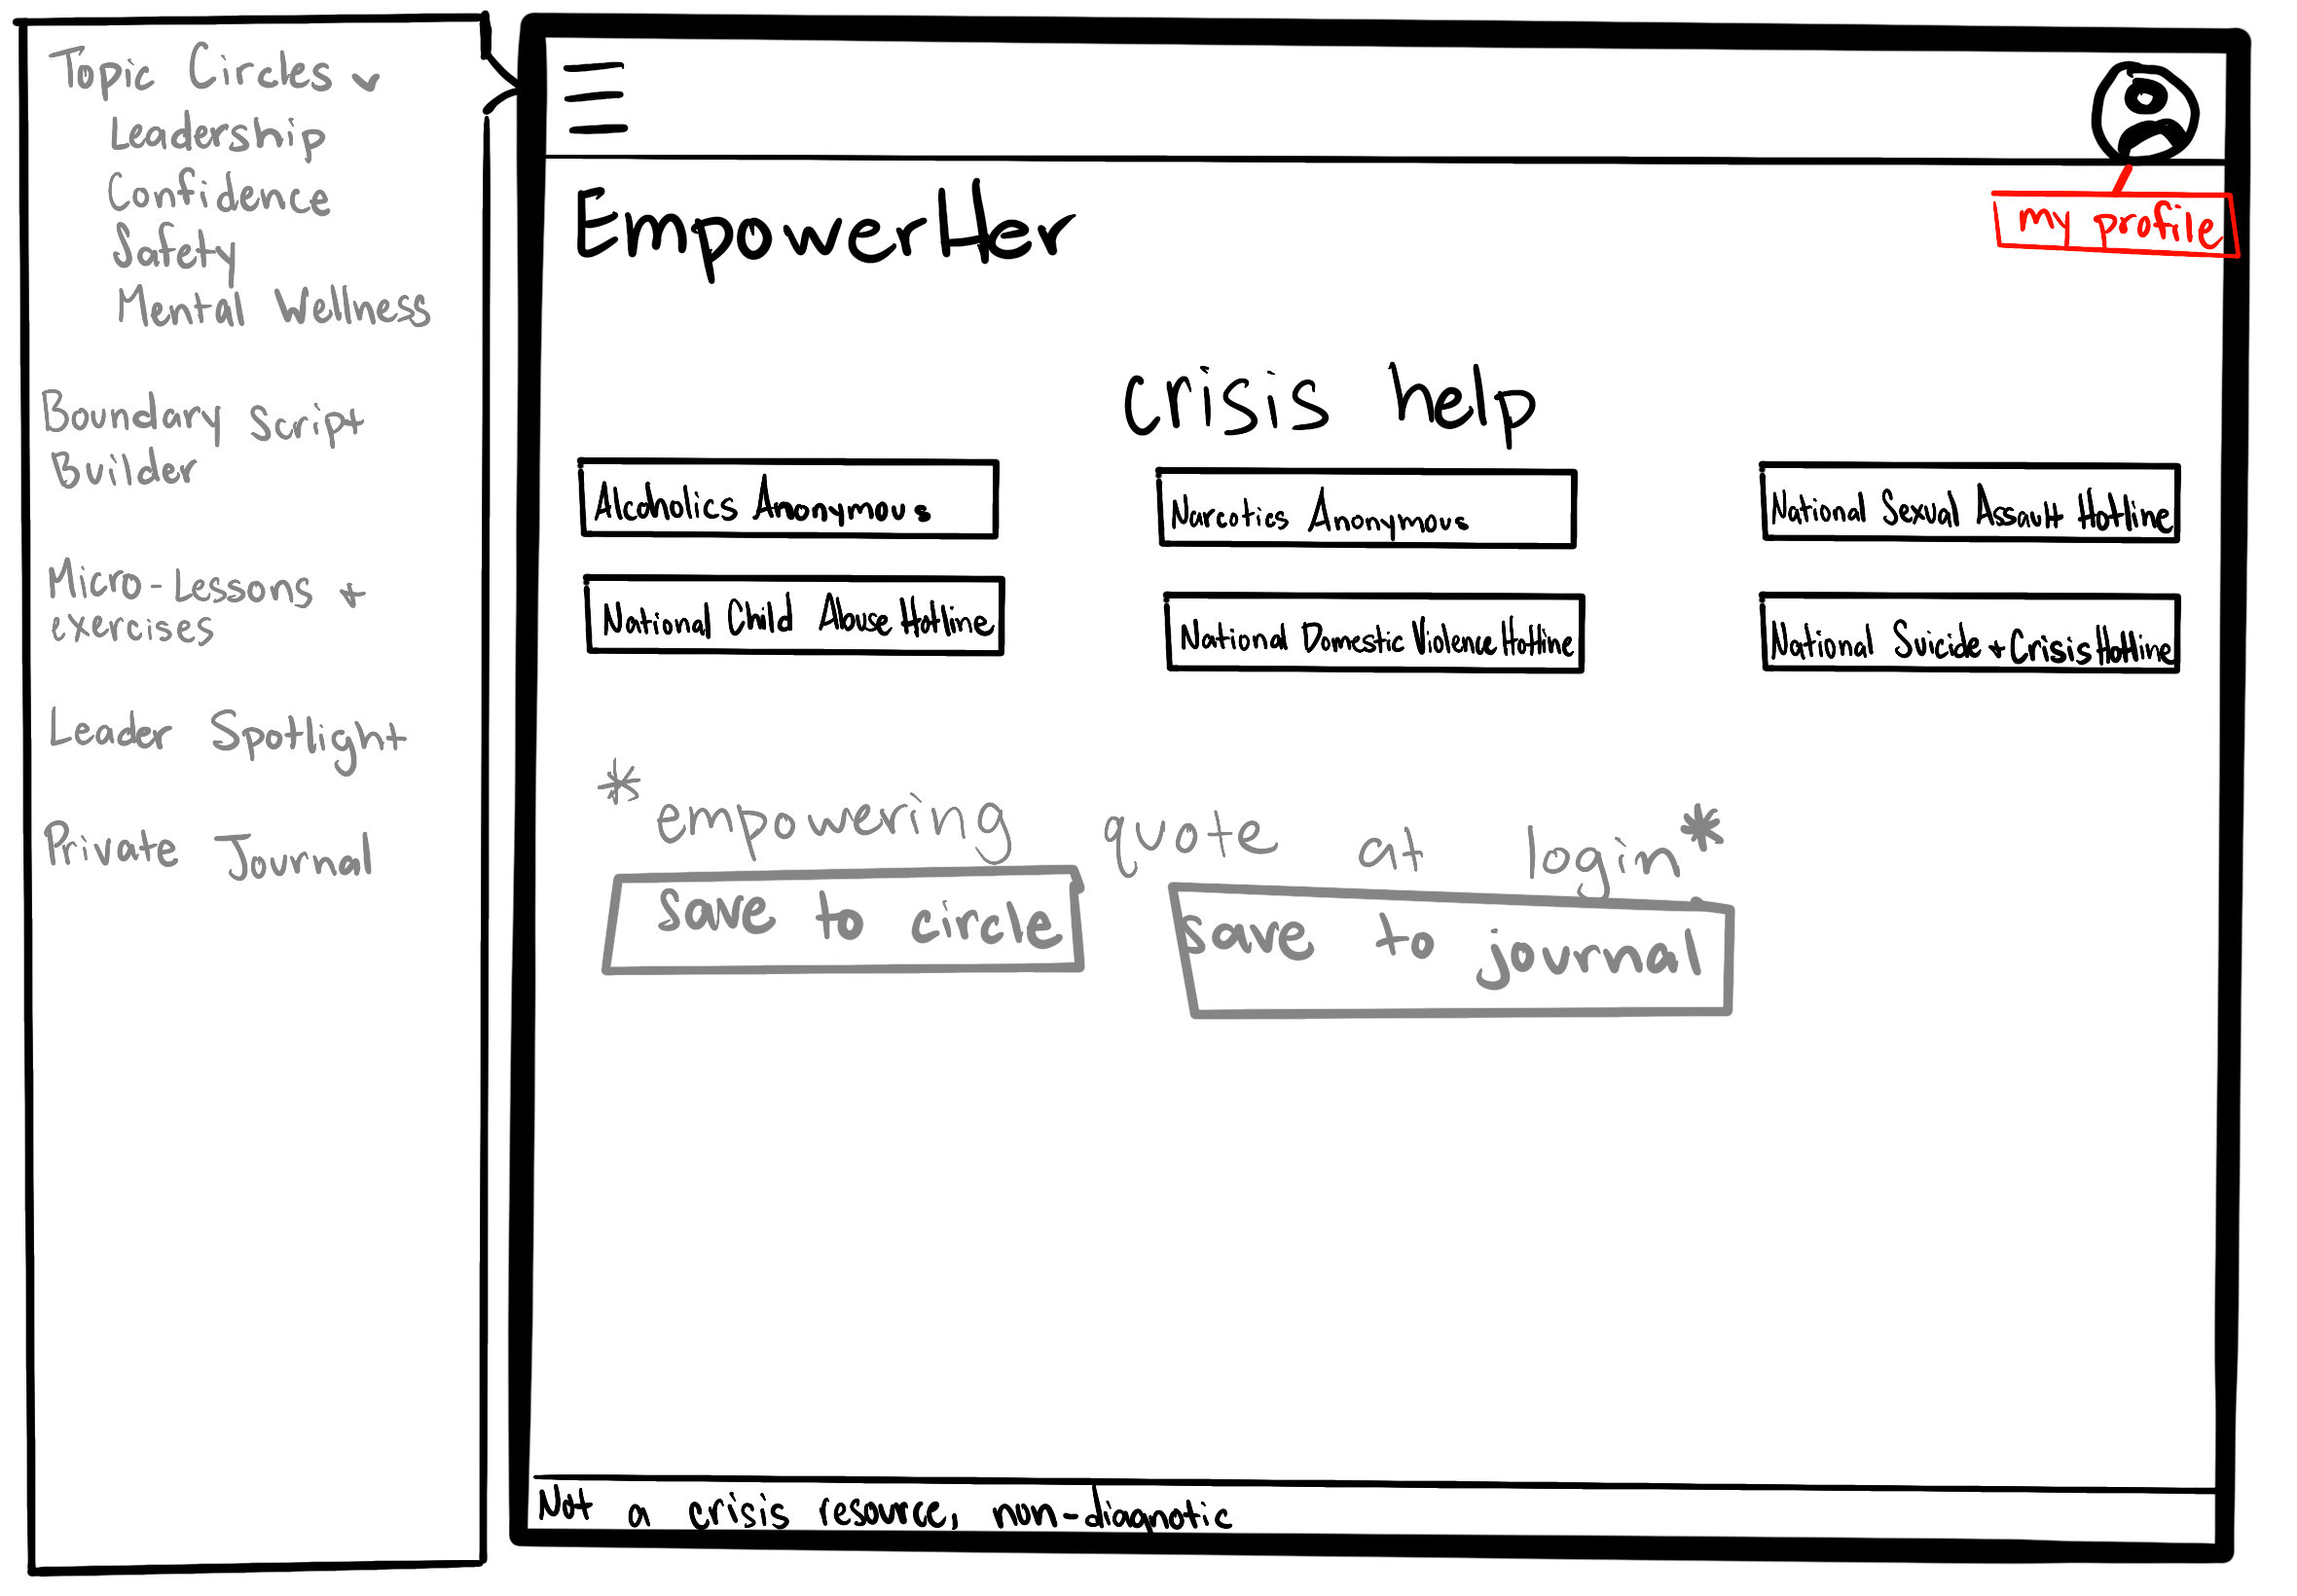 Topic Circles
Leadership
Confidence
Safety
Mental Wellness
Boundary Script
Builder
Micro-Lessons +
exercises
Leader Spotlight
Private Journal
my profile
EmpowerHer
crisis help
Alcoholics Anonymous
Narcotics Anonymous
National Sexual Assault Hotline
National Child Abuse Hotline
National Domestic Violence Hotline
National Suicide + Crisis Hotline
*empowering quote at login*
save to circle
save to journal
Not a crisis resource, non-diagnotic